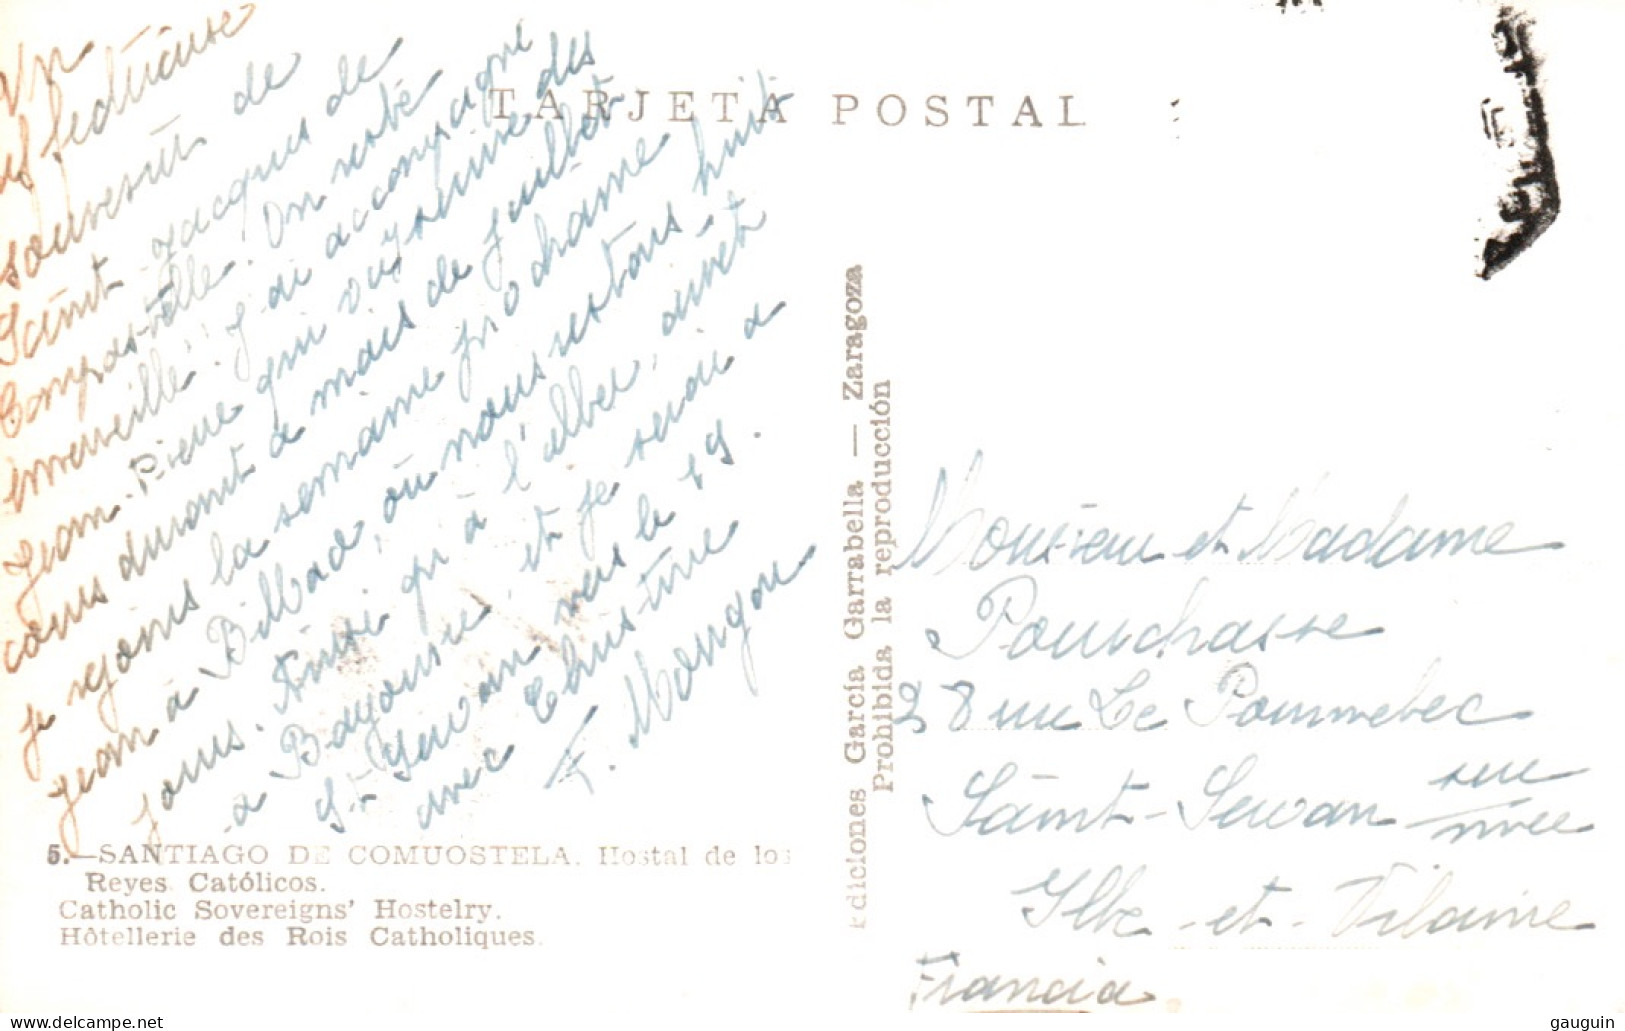 TARJETA POSTAL
Un
affectueux
souvenir de
Saint Jacques de
Compostelle. On reste
émerveillé! J'ai accompagné
Jean-Pierre qui voyage des
cours durant mois de juillet
je rejoins la semaine prochaine
Jean à Bilbao, où nous restons huit
jours. Ainsi qu'à l'aller,
à Bayonne et je serai à
St Servan vers le 19.
avec Christine
Mongon
5.—SANTIAGO DE COMUOSTELA. Hostal de los
Reyes Católicos.
Catholic Sovereigns' Hostelry.
Hôtellerie des Rois Catholiques.
Ediciones García Garrabella — Zaragoza
Prohibida la reproducción
Monsieur et Madame
Pourchasse
28 rue Le Pommelec
Saint-Servan sur
mer
Ille-et-Vilaine
Francia
gauguin // www.delcampe.net